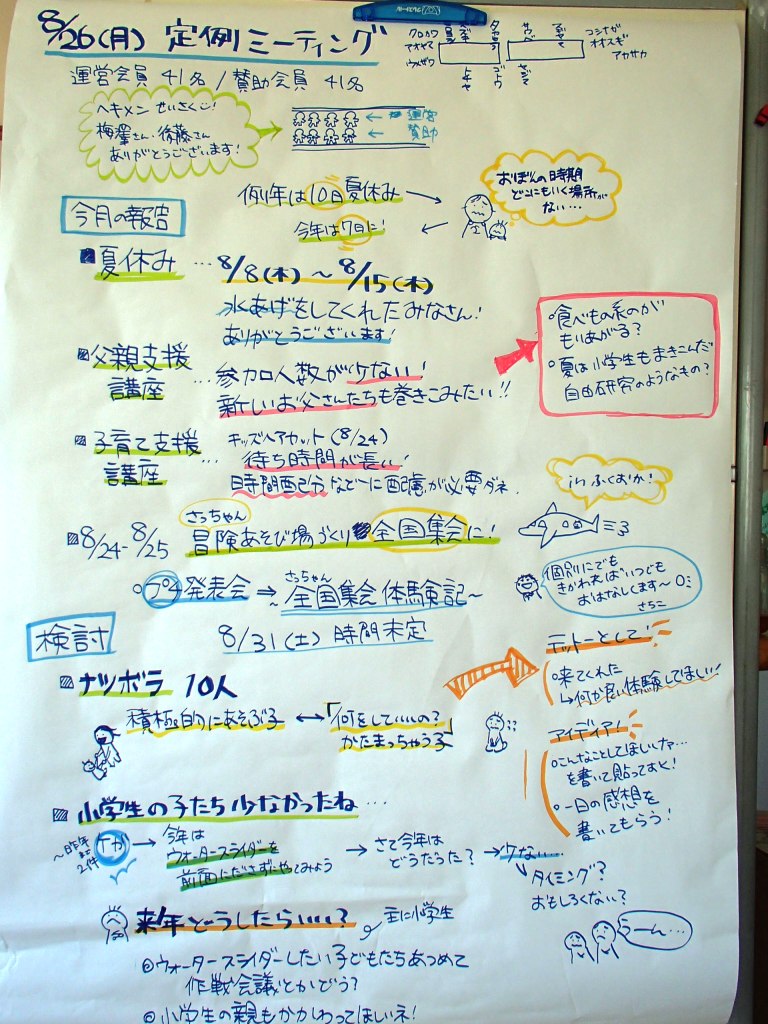 8/26(月) 定例ミーティング
運営会員 41名 / 賛助会員 41名
クロカワ
アオヤマ
ウメザワ
ゴトウ
コシナガ
オオスギ
アカサカ
ヘキメン せいさく
梅澤さん・後藤さん
ありがとうございます!
← 運営
← 賛助
例年は10日夏休み →
今年は7日に! ←
おぼんの時期
どこにもいく場所が
ない…
今月の報告
夏休み … 8/8(木) 〜 8/15(木)
水あげをしてくれたみなさん!
ありがとうございます!
父親支援
講座 … 参加人数が少ない!
新しいお父さんたちも巻きこみたい!!
○食べもの系のが
もりあがる?
○夏は小学生もまきこんだ
自由研究のようなもの?
子育て支援
講座 … キッズヘアカット(8/24)
待ち時間が長い!
時間配分などに配慮が必要ダネ.
in ふくおか!
8/24-8/25 さっちゃん
冒険あそび場づくり 全国集会に!
○プチ発表会 ⇒ さっちゃん
〜全国集会 体験記〜
8/31(土) 時間未定
個別にでも
きかれればいつでも
おはなしします〜
さちこ
検討
ナツボラ 10人
積極的にあそぶ子 ↔ 「何をしていいの?」
かたまっちゃう子
テットーとして!
○来てくれた
→何か良い体験してほしい!
アイディア!
○こんなことしてほしいナァ…
を書いて貼っておく!
○一日の感想を
書いてもらう!
小学生の子たち少なかったね…
〜昨年
2件
→ 今年は
ウォータースライダーを
前面にださずにやってみよう
→ さて今年は
どうだった?
→ 少ない…
タイミング?
おもしろくない?
来年どうしたらいい?
主に小学生
うーん…
◎ウォータースライダーしたい子どもたちあつめて
作戦会議とかどう?
◎小学生の親もかかわってほしいネ!